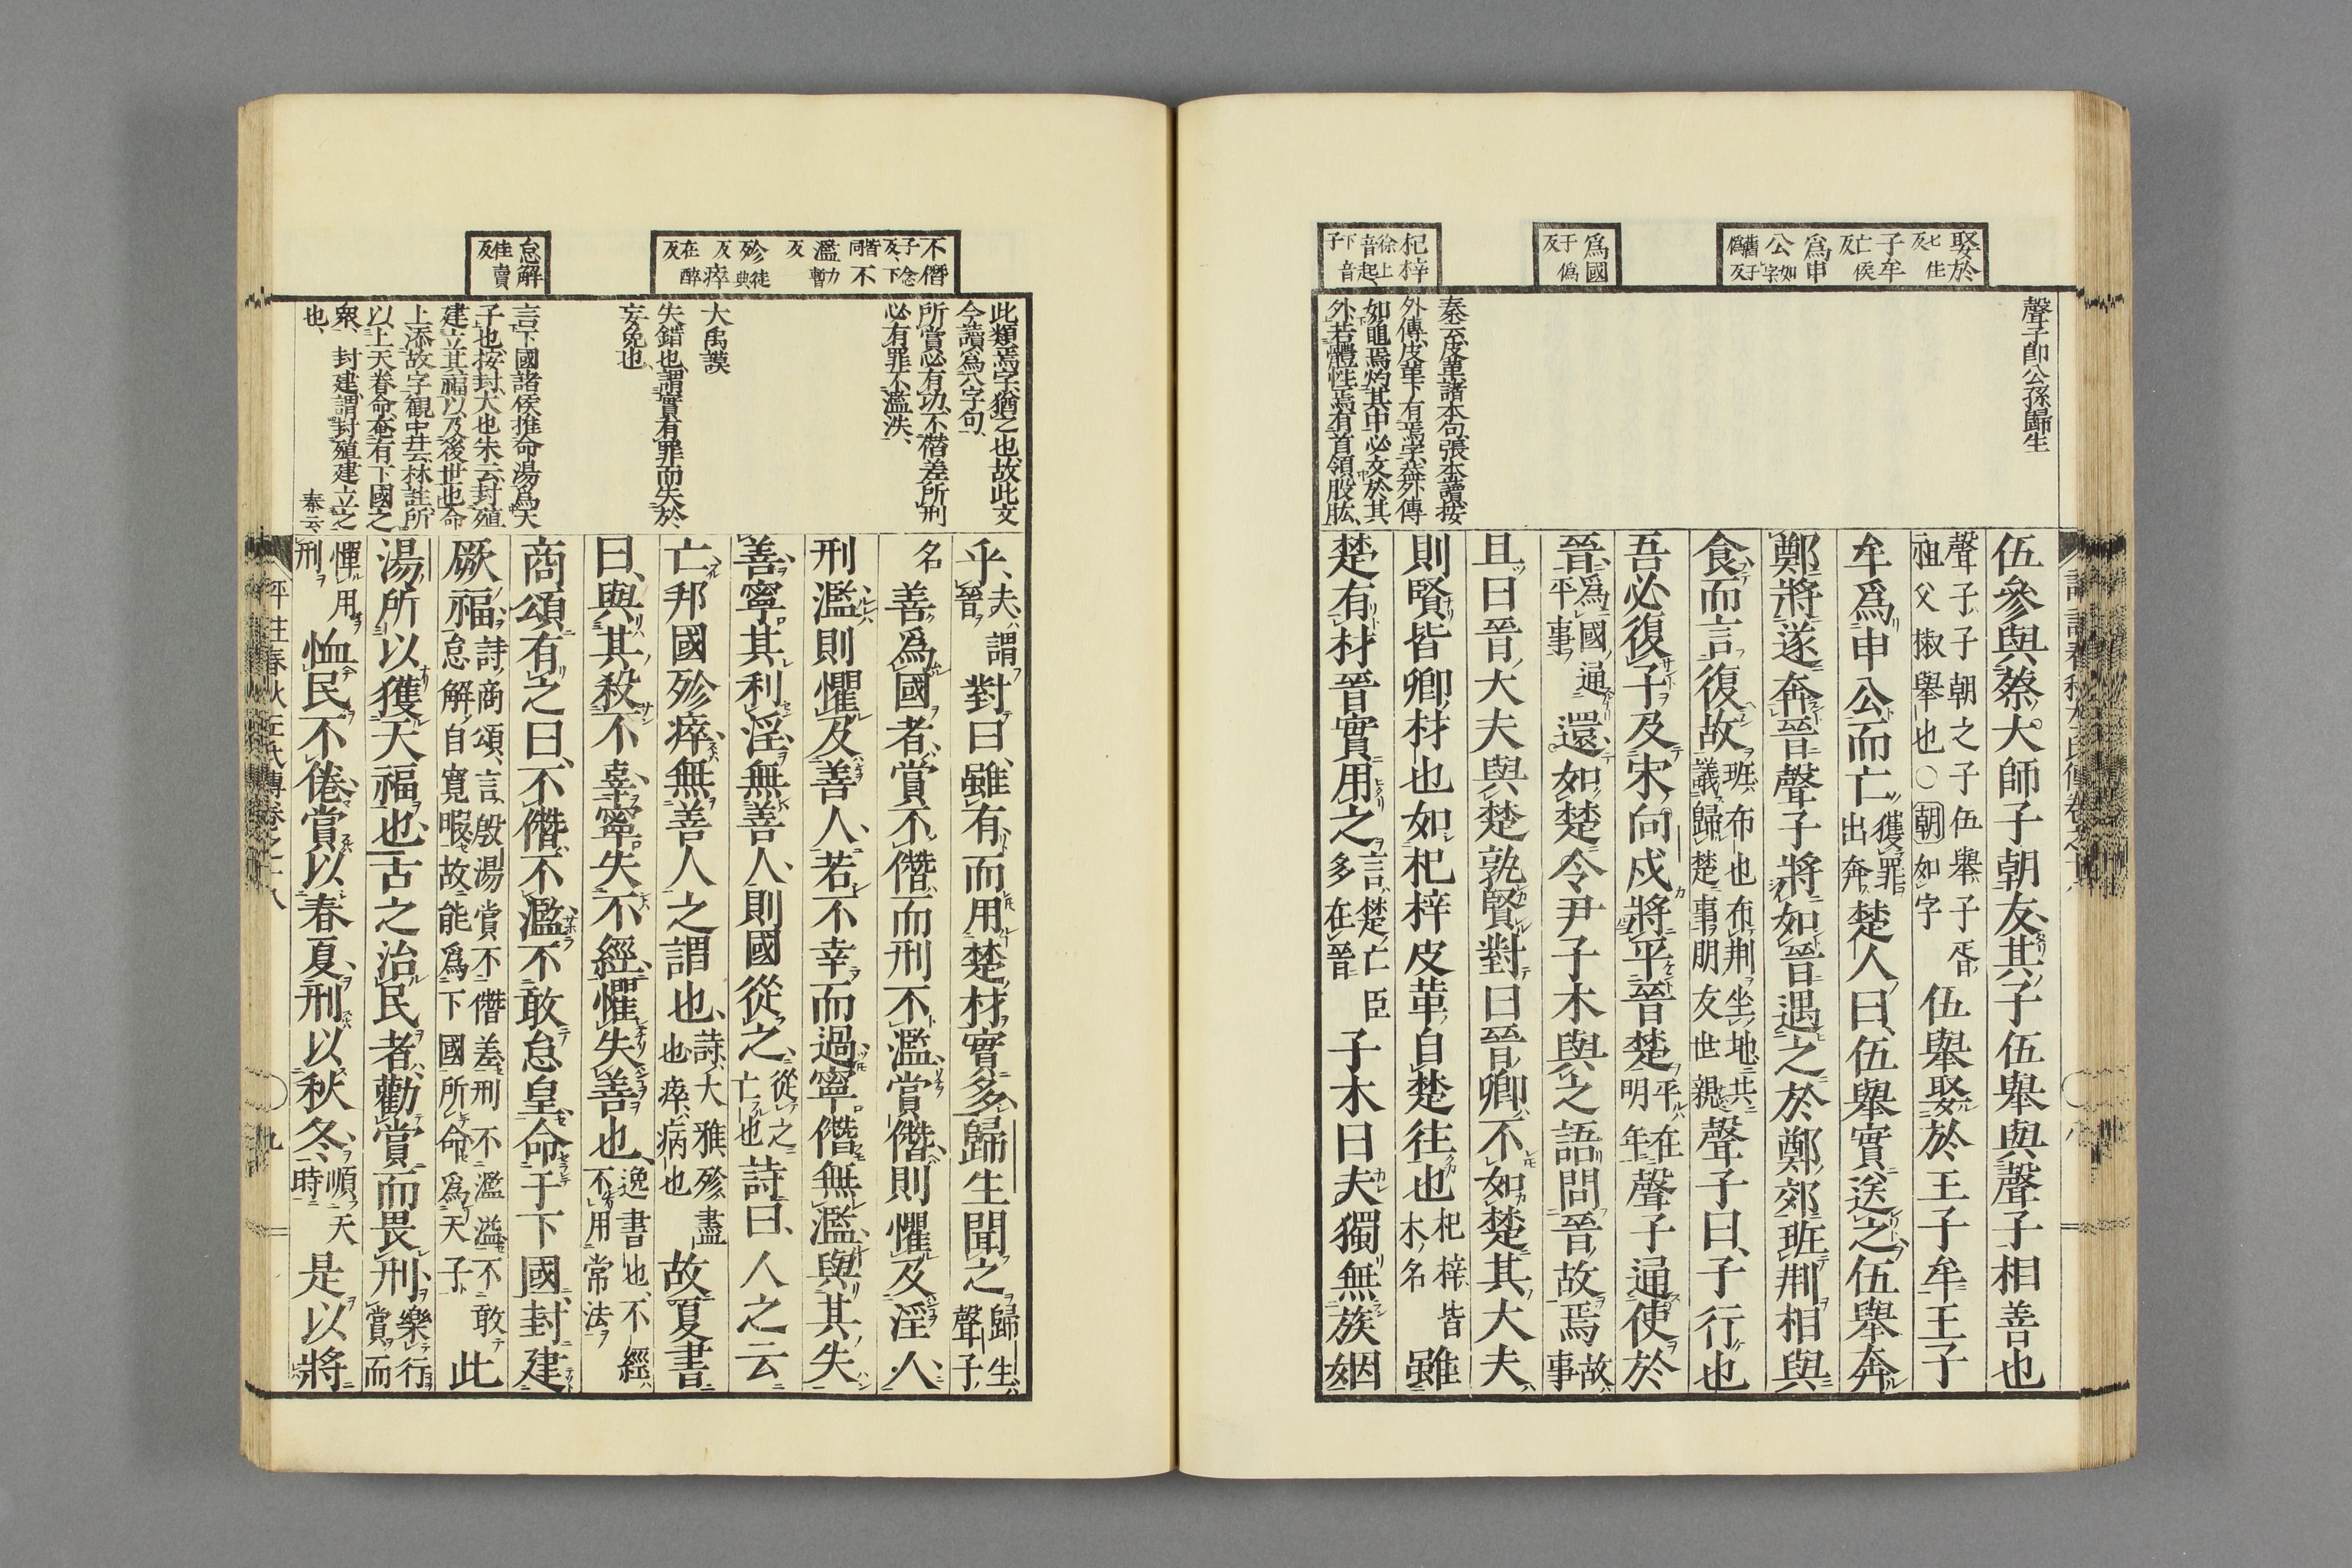 娶於七住反子牟亡侯反爲申公如字舊于僞反
爲國于僞反
杞梓徐上音起下音子
聲子即公孫歸生
秦云皮革諸本句張本讀按
外傳皮革下有焉字蔡外傳
如龜焉灼其中必文於其
外若體性焉有首領股肱
伍參與蔡大師子朝友、其子伍舉與聲子相善也
聲子子朝之子伍舉子胥祖父椒舉也○朝如字伍舉娶於王子牟王子
牟爲申公而亡獲罪出奔楚人曰、伍舉實送之伍舉奔
鄭將遂奔晉聲子將如晉遇之於鄭郊班荆相與
食而言復故班布也布荆坐地共議歸楚事朋友世親聲子曰、子行也
吾必復子及宋向戌將平晉楚平在明年聲子通使於
晉爲國通平事還如楚令尹子木與之語問晉故焉故事
且曰晉大夫與楚孰賢對曰晉卿不如楚其大夫
則賢皆卿材也如杞梓皮革自楚往也杞梓皆木名雖
楚有材晉實用之言楚亡臣多在晉子木曰夫獨無族姻
不僭子念反下皆同不濫力暫反殄徒典反瘁在醉反
怠解佳賣反
此類焉字猶之也故此文
今讀爲八字句
所賞必有功不僭差所刑
必有罪不濫泆、
大禹謨
失錯也謂實有罪而失於
妄免也
言下國諸侯推命湯爲天
子也按封大也朱云封殖
建立其福以及後世也命
上添故字觀中井云林註所
以上天眷命奄有下國之
衆、封建謂封殖建立之
也、秦云
乎、夫謂晉對曰、雖有而用楚材實多歸生聞之歸生聲子
名善爲國者賞不僭而刑不濫賞僭則懼及淫人、
刑濫則懼及善人、若不幸而過寧僭無濫與其失
善寧其利淫無善人、則國從之、從之亡也詩曰、人之云
亡邦國殄瘁無善人之謂也、詩大雅殄盡也瘁病也故夏書
曰、與其殺不辜、寧失不經、懼失善也、逸書也不經不用常法
商頌有之曰、不僭不濫不敢怠皇命于下國封建
厥福詩商頌言殷湯賞不僭差刑不濫溢不敢怠解自寬暇故能爲下國所命爲天子此
湯所以獲天福也古之治民者勸賞而畏刑、樂行賞而
憚用刑恤民不倦賞以春夏刑以秋冬、順天時是以將
評註春秋左氏傳卷之十八
九